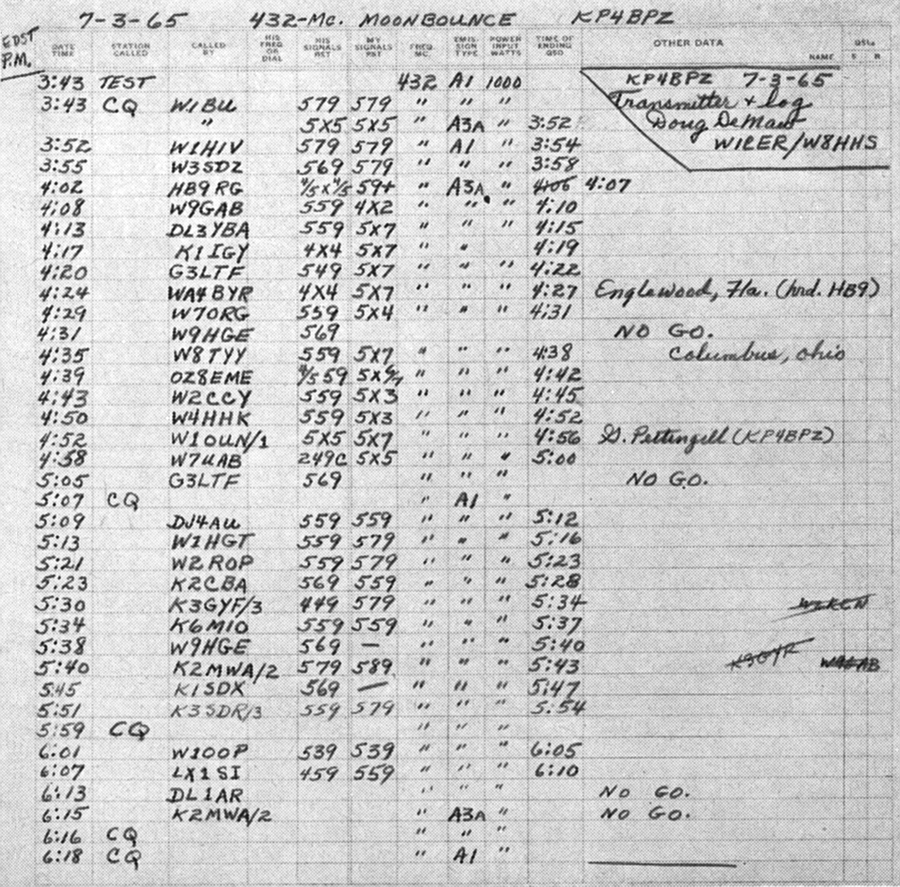 7-3-65 432-Mc. MOONBOUNCE KP4BPZ
EDST P.M.
DATE TIME STATION CALLED CALLED BY HIS FREQ. OR DIAL HIS SIGNALS RST MY SIGNALS RST FREQ. MC. EMIS- SION TYPE POWER INPUT WATTS TIME OF ENDING QSO OTHER DATA NAME QSLs S R
3:43 TEST 432 A1 1000 KP4BPZ 7-3-65
3:43 CQ W1BU 579 579 " " " Transmitter + log
" 5X5 5X5 " A3A 3:52 Doug DeMaw
3:52 W1HIV 579 579 " A1 " 3:54 W1CER/W8HHS
3:55 W3SDZ 569 579 " " " 3:58
4:02 HB9RG 4/5X4/5 59+ " A3A " 4:06 4:07
4:08 W9GAB 559 4X2 " " " 4:10
4:13 DL3YBA 559 5X7 " " " 4:15
4:17 K1IGY 4X4 5X7 " " 4:19
4:20 G3LTF 549 5X7 " " " 4:22
4:24 WA4BYR 4X4 5X7 " " " 4:27 Englewood, Fla. (hrd. HB9)
4:29 W7ORG 559 5X4 " " " 4:31
4:31 W9HGE 569 NO GO.
4:35 W8TYY 559 5X7 " " " 4:38 Columbus, Ohio
4:39 OZ8EME 4/5 59 5X6/7 " " " 4:42
4:43 W2CCY 559 5X3 " " " 4:45
4:50 W4HHK 559 5X3 " " " 4:52
4:52 W1OUN/1 5X5 5X7 " " " 4:56 G. Pettengill (KP4BPZ)
4:58 W7UAB 249C 5X5 " " " 5:00
5:05 G3LTF 569 NO GO.
5:07 CQ " A1 "
5:09 DJ4AU 559 559 " " " 5:12
5:13 W1HGT 559 579 " " " 5:16
5:21 W2ROP 559 579 " " " 5:23
5:23 K2CBA 569 559 " " " 5:28
5:30 K3GYF/3 449 579 " " " 5:34
5:34 K6MIO 559 559 " " " 5:37
5:38 W9HGE 569 — " " " 5:40
5:40 K2MWA/2 579 589 " " " 5:43
5:45 K1SDX 569 — " " " 5:47
5:51 K3SDR/3 559 579 " " " 5:54
5:59 CQ " " "
6:01 W1OOP 539 539 " " " 6:05
6:07 LX1SI 459 559 " " " 6:10
6:13 DL1AR " " " NO GO.
6:15 K2MWA/2 " A3A " NO GO.
6:16 CQ " " "
6:18 CQ " A1 "